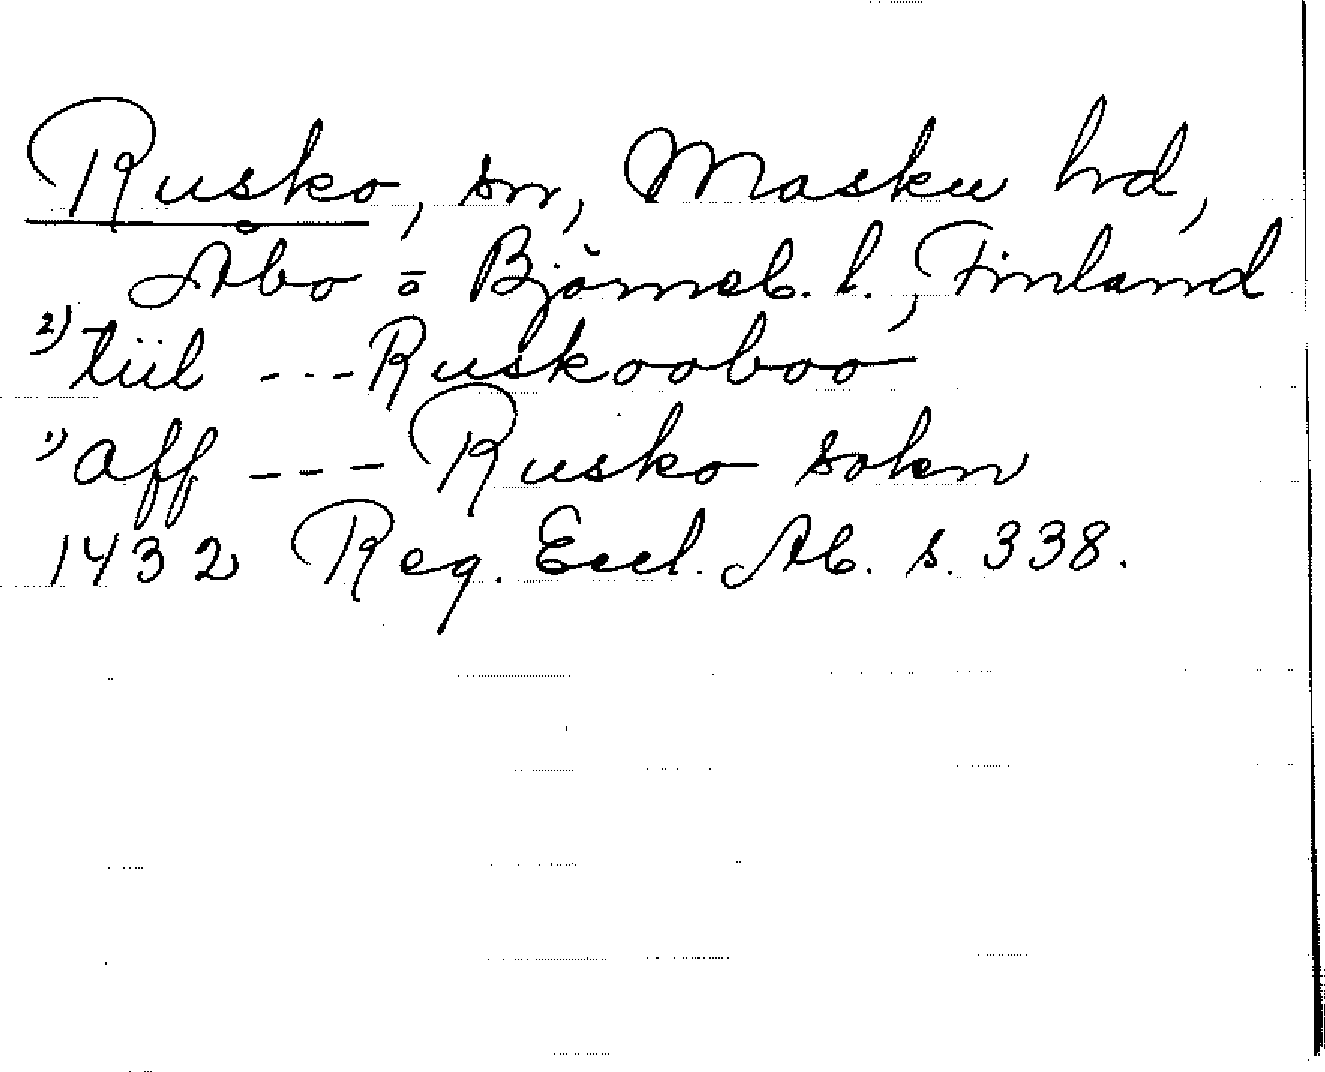 Rusko, sn, Masku hd,
Åbo = Björneb. l., Finland
2) tiil --- Ruskooboo
1) aff --- Rusko sokn
1432 Reg. Eccl. Ab. s. 338.